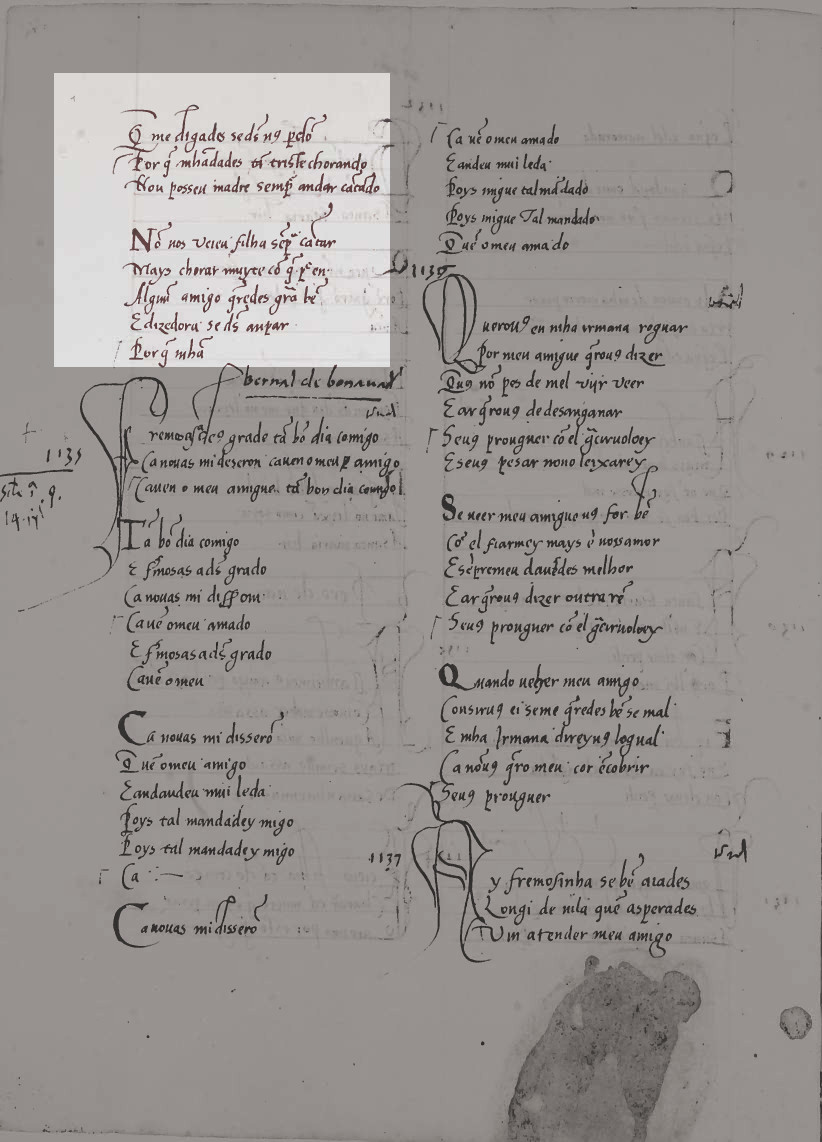 Q̃ me digades se ds̃ uꝯ ꝑdõ
Por q̃ mhãdades tã triste chorando
Nou posseu madre semp̃ andar cãtãdo
Nõ uos ueieu filha sẽp̃ cãtar
Mays chorar muyte cõ q̃ p̃ en
Algũu amigo q̃redes grã bẽ
E dizedora se ds̃ anpar
Por q̃ mhã
bernal de bonaual
1135
Fremosas a deꝯ grade tã bõ dia comigo
Ca nouas mi deseron ca uen o meu amigo
Ca uen o meu amigue tã bon dia comigo
Tã bõ dia comigo
E fremosas a ds̃ grado
Ca nouas mi disserom
Ca uẽ o meu amado
E fremosas a ds̃ grado
Ca uẽ o meu
Ca nouas mi disserõ
Que uẽ o meu amigo
E andandeu mui leda
Poys tal mandadey migo
Poys tal mandadey migo
Ca
Ca nouas mi disserõ
Ca uẽ o meu amado
E andeu mui leda
Poys migue tal mãdado
Poys migue tal mandado
Que uẽ o meu amado
1136
Querouꝯ eu mha irmana roguar
Por meu amigue q̃rouꝯ dizer
Que uꝯ nõ pes de mel uijr ueer
E ar q̃rouꝯ de desenganar
Seuꝯ prouguer cõ el gracir uoloey
E seuꝯ pesar nono leixarey
Se ueer meu amigue uꝯ for bẽ
Cõ el fiarmey mays ẽ uossamor
E sẽpremeu dauedes melhor
E ar q̃rouꝯ dizer outra rẽ
Seuꝯ prouguer cõ el gracir uoloey
Quando ueher meu amigo
Consiruꝯ ei se me q̃redes bẽ se mal
E mha Irmana direyuꝯ logual
Ca nõ uꝯ q̃ro meu cor ẽcobrir
Seuꝯ prouguer
1137
Ay fremosinha se bẽ aiades
Longi de uila quẽ asperades
Vim atender meu amigo